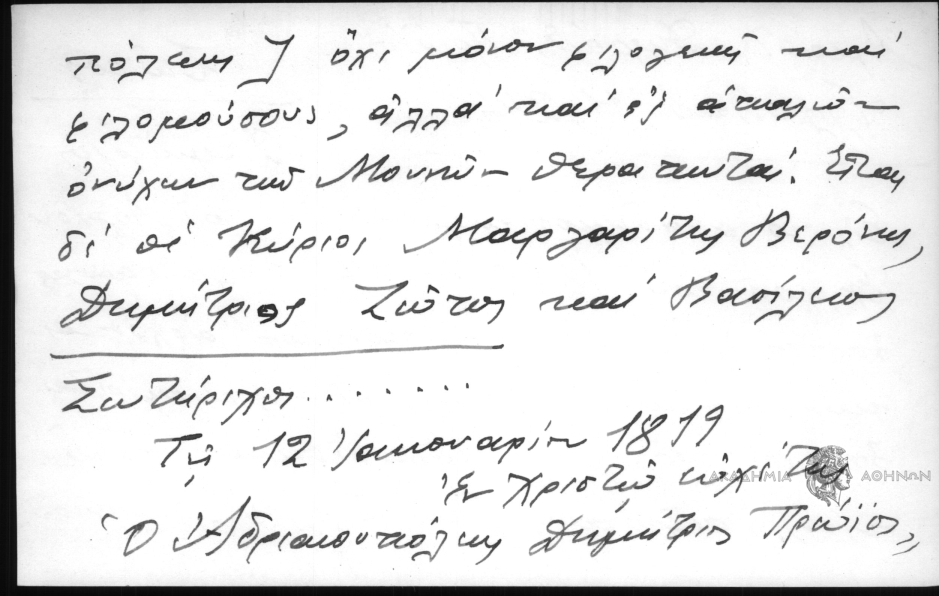 πόλεως] ὄχι μόνον φιλολογικῆ καὶ
φιλομούσους, ἀλλὰ καὶ ἐξ ἁπαλῶν
ὀνύχων τῶν Μουσῶν θεραπευταί. Εἶναι
δὲ οἱ Κύριοι Μαργαρίτης Βερόνης,
Δημήτριος Ζῶτος καὶ Βασίλειος
Σωτήριχος.......
Τῇ 12 Ἰανουαρίου 1819
Ἐν Χριστῷ εὐχέτης
Ὁ Ἀδριανουπόλεως Δημήτριος Πρώϊος,,
ΑΚΑΔΗΜΙΑ ΑΘΗΝΩΝ